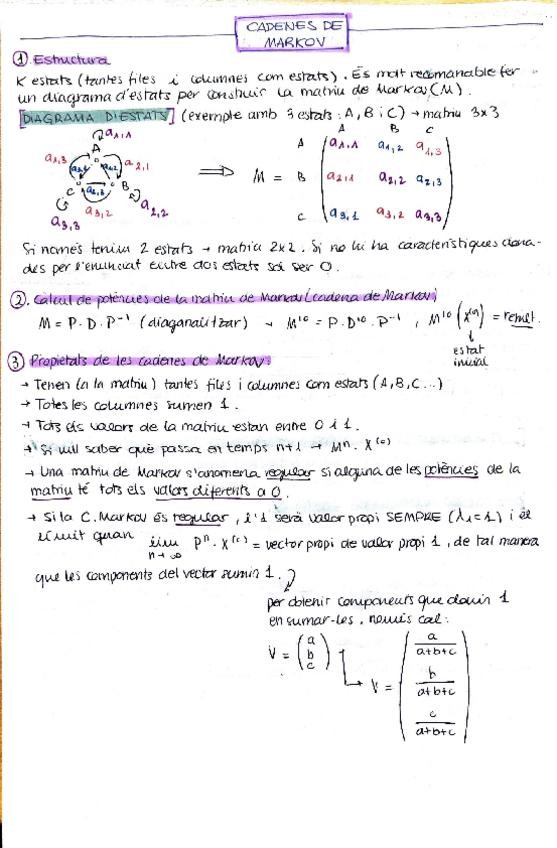 CADENES DE
MARKOV
① Estructura
K estats (tantes files i columnes com estats). És molt recomanable fer
un diagrama d'estats per construir la matriu de Markov (M).
[DIAGRAMA D'ESTATS] (exemple amb 3 estats: A, B i C) → matriu 3x3
A B C
a1,1
A
a1,3 a2,1
C B
a3,3 a3,2 a2,2
⇒ M =
A a1,1 a1,2 a1,3
B a2,1 a2,2 a2,3
C a3,1 a3,2 a3,3
Si només tenim 2 estats → matriu 2x2. Si no hi ha característiques dona-
des per l'enunciat entre dos estats sol ser 0.
② Càlcul de potències de la matriu de Markov (cadena de Markov)
M = P·D·P⁻¹ (diagonalitzar) → M¹⁰ = P·D¹⁰·P⁻¹, M¹⁰ (X⁽⁰⁾) = result.
↓
estat
inicial
③ Propietats de les cadenes de Markov:
→ Tenen (a la matriu) tantes files i columnes com estats (A, B, C...)
→ Totes les columnes sumen 1.
→ Tots els valors de la matriu estan entre 0 i 1.
→ Si vull saber què passa en temps n+1 → Mⁿ·X⁽⁰⁾
→ Una matriu de Markov s'anomena regular si alguna de les potències de la
matriu té tots els valors diferents a 0.
→ Si la C. Markov és regular, l'1 serà valor propi SEMPRE (λ₁=1) i el
límit quan lim n→∞ Pⁿ·X⁽⁰⁾ = vector propi de valor propi 1, de tal manera
que les components del vector sumin 1.
per obtenir components que donin 1
en sumar-les, només cal:
V = (a b c) → V = (a/a+b+c b/a+b+c c/a+b+c)